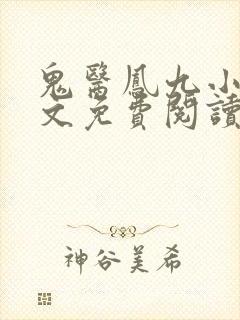 鬼醫鳳九小
文免費閱讀
神谷美希